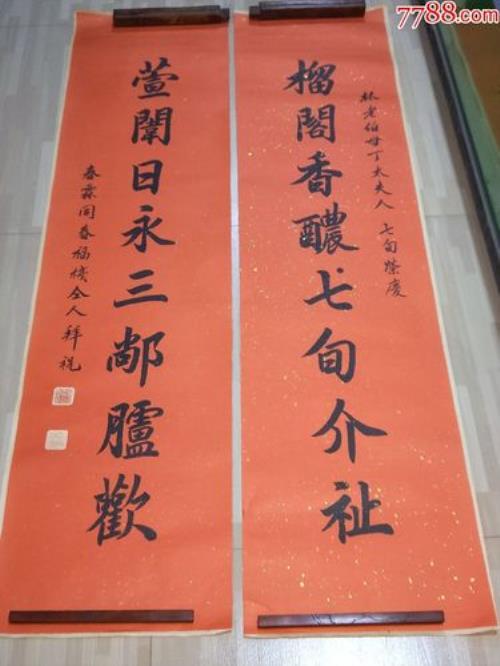 榴閣香醲七旬介祉
林老伯母丁太夫人 七旬榮慶
萱闈日永三鄰臚歡
春霖同春福慶仝人拜祝
7788.com